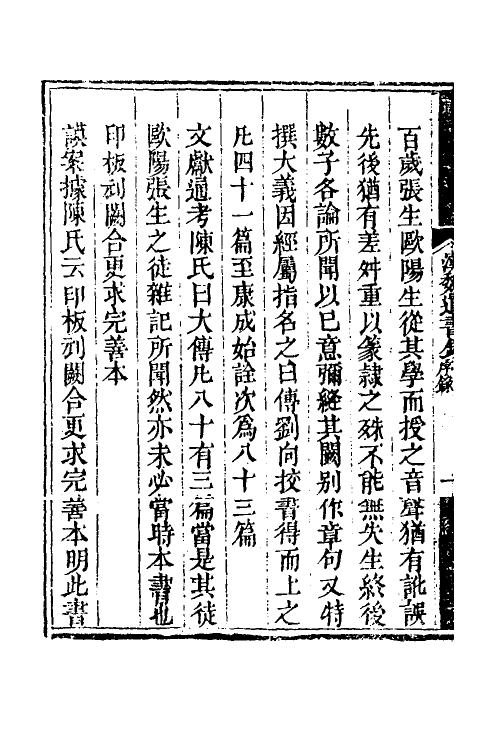 百歲張生歐陽生從其學而授之音聲猶有訛誤
先後猶有差舛重以篆隸之殊不能無失生終後
數子各論所聞以已意彌縫其闕别作章句又特
撰大義因經屬指名之曰傳劉向挍書得而上之
凡四十一篇至康成始詮次爲八十三篇
文獻通考陳氏曰大傳凡八十有三篇當是其徒
歐陽張生之徒雜記所聞然亦未必當時本書也
印板刓闕合更求完善本
謨案據陳氏云印板刓闕合更求完善本明此書
漢魏遺書鈔序錄